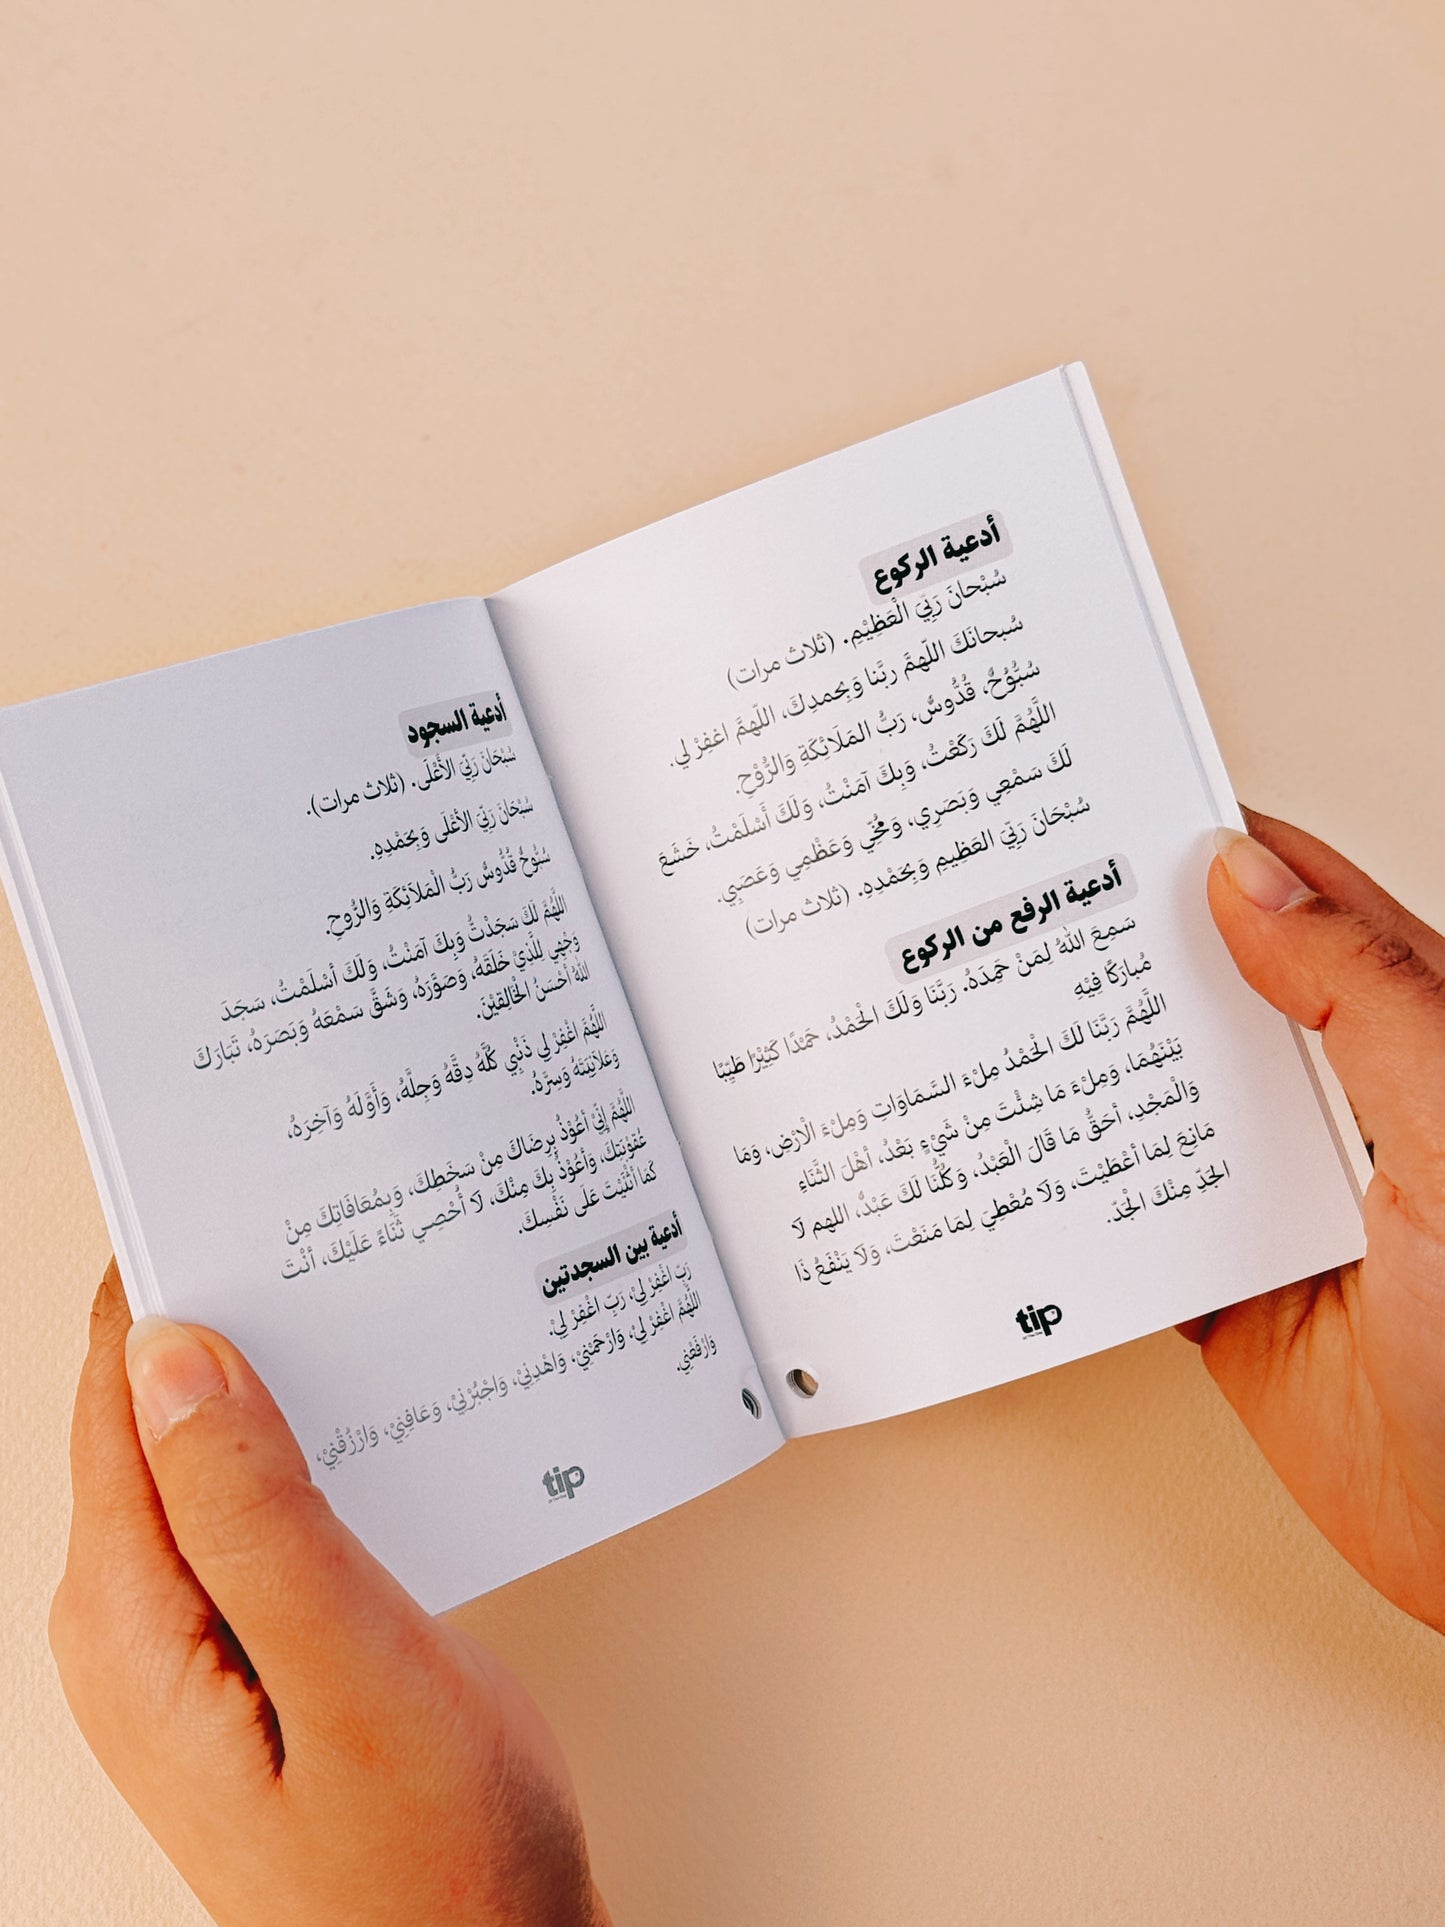 أدعية الركوع
سُبْحانَ رَبِّيَ الْعَظِيْمِ. (ثلاث مرات)
سُبحانَكَ اللّهمَّ ربَّنا وَبِحمدِكَ، اللّهمَّ اغفِرْ لي.
سُبُّوُحٌ، قُدُّوسٌ، رَبُّ المَلَائِكَةِ وَالرُّوْحِ.
اللَّهُمَّ لَكَ رَكَعْتُ، وَبِكَ آمَنْتُ، وَلَكَ أَسْلَمْتُ، خَشَعَ
لَكَ سَمْعِي وَبَصَرِي، وَمُخِّي وَعَظْمِي وَعَصَبِي.
سُبْحَانَ رَبِّيَ العَظِيمِ وَبِحَمْدِهِ. (ثلاث مرات)
أدعية الرفع من الركوع
سَمِعَ اللهُ لِمَنْ حَمِدَهُ. رَبَّنَا وَلَكَ الْحَمْدُ، حَمْدًا كَثِيْرًا طَيِّبًا
مُبارَكًا فِيْهِ
اللَّهُمَّ رَبَّنَا لَكَ الْحَمْدُ مِلْءَ السَّمَاوَاتِ وَمِلْءَ الْأرْضِ، وَمَا
بَيْنَهُمَا، وَمِلْءَ مَا شِئْتَ مِنْ شَيْءٍ بَعْدُ، أهْلَ الثَّنَاءِ
وَالْمَجْدِ، أحَقُّ مَا قَالَ الْعَبْدُ، وَكُلُّنَا لَكَ عَبْدٌ، اللهم لَا
مَانِعَ لِمَا أعْطَيْتَ، وَلَا مُعْطِيَ لِمَا مَنَعْتَ، وَلَا يَنْفَعُ ذَا
الجَدِّ مِنْكَ الْجَدّ.
tip
أدعية السجود
سُبْحَانَ رَبِّيَ الأَعْلَى. (ثلاث مرات).
سُبْحَانَ رَبِّيَ الأَعْلَى وَبِحَمْدِهِ.
سُبُّوحٌ قُدُّوسٌ رَبُّ الْمَلَائِكَةِ وَالرُّوحِ.
اللَّهُمَّ لَكَ سَجَدْتُ وَبِكَ آمَنْتُ، وَلَكَ أَسْلَمْتُ، سَجَدَ
وَجْهِي لِلَّذِيْ خَلَقَهُ، وَصَوَّرَهُ، وَشَقَّ سَمْعَهُ وَبَصَرَهُ، تَبَارَكَ
اللهُ أَحْسَنُ الْخَالِقِيْنَ.
اللَّهُمَّ اغْفِرْ لِي ذَنْبِي كُلَّهُ دِقَّهُ وَجِلَّهُ، وَأَوَّلَهُ وَآخِرَهُ،
وَعَلَانِيَتَهُ وَسِرَّهُ.
اللَّهُمَّ إِنِّيْ أعُوْذُ بِرِضَاكَ مِنْ سَخَطِكَ، وَبِمُعَافَاتِكَ مِنْ
عُقُوْبَتِكَ، وَأعُوْذُ بِكَ مِنْكَ، لَا أُحْصِي ثَنَاءً عَلَيْكَ، أنْتَ
كَمَا أَثْنَيْتَ عَلَى نَفْسِكَ.
أدعية بين السجدتين
رَبِّ اغْفِرْ لِيْ، رَبِّ اغْفِرْ لِيْ.
اللَّهُمَّ اغْفِرْ لِيْ، وَارْحَمْنِيْ، وَاهْدِنِيْ، وَاجْبُرْنِيْ، وَعَافِنِيْ، وَارْزُقْنِيْ،
وَارْفَعْنِي.
tip